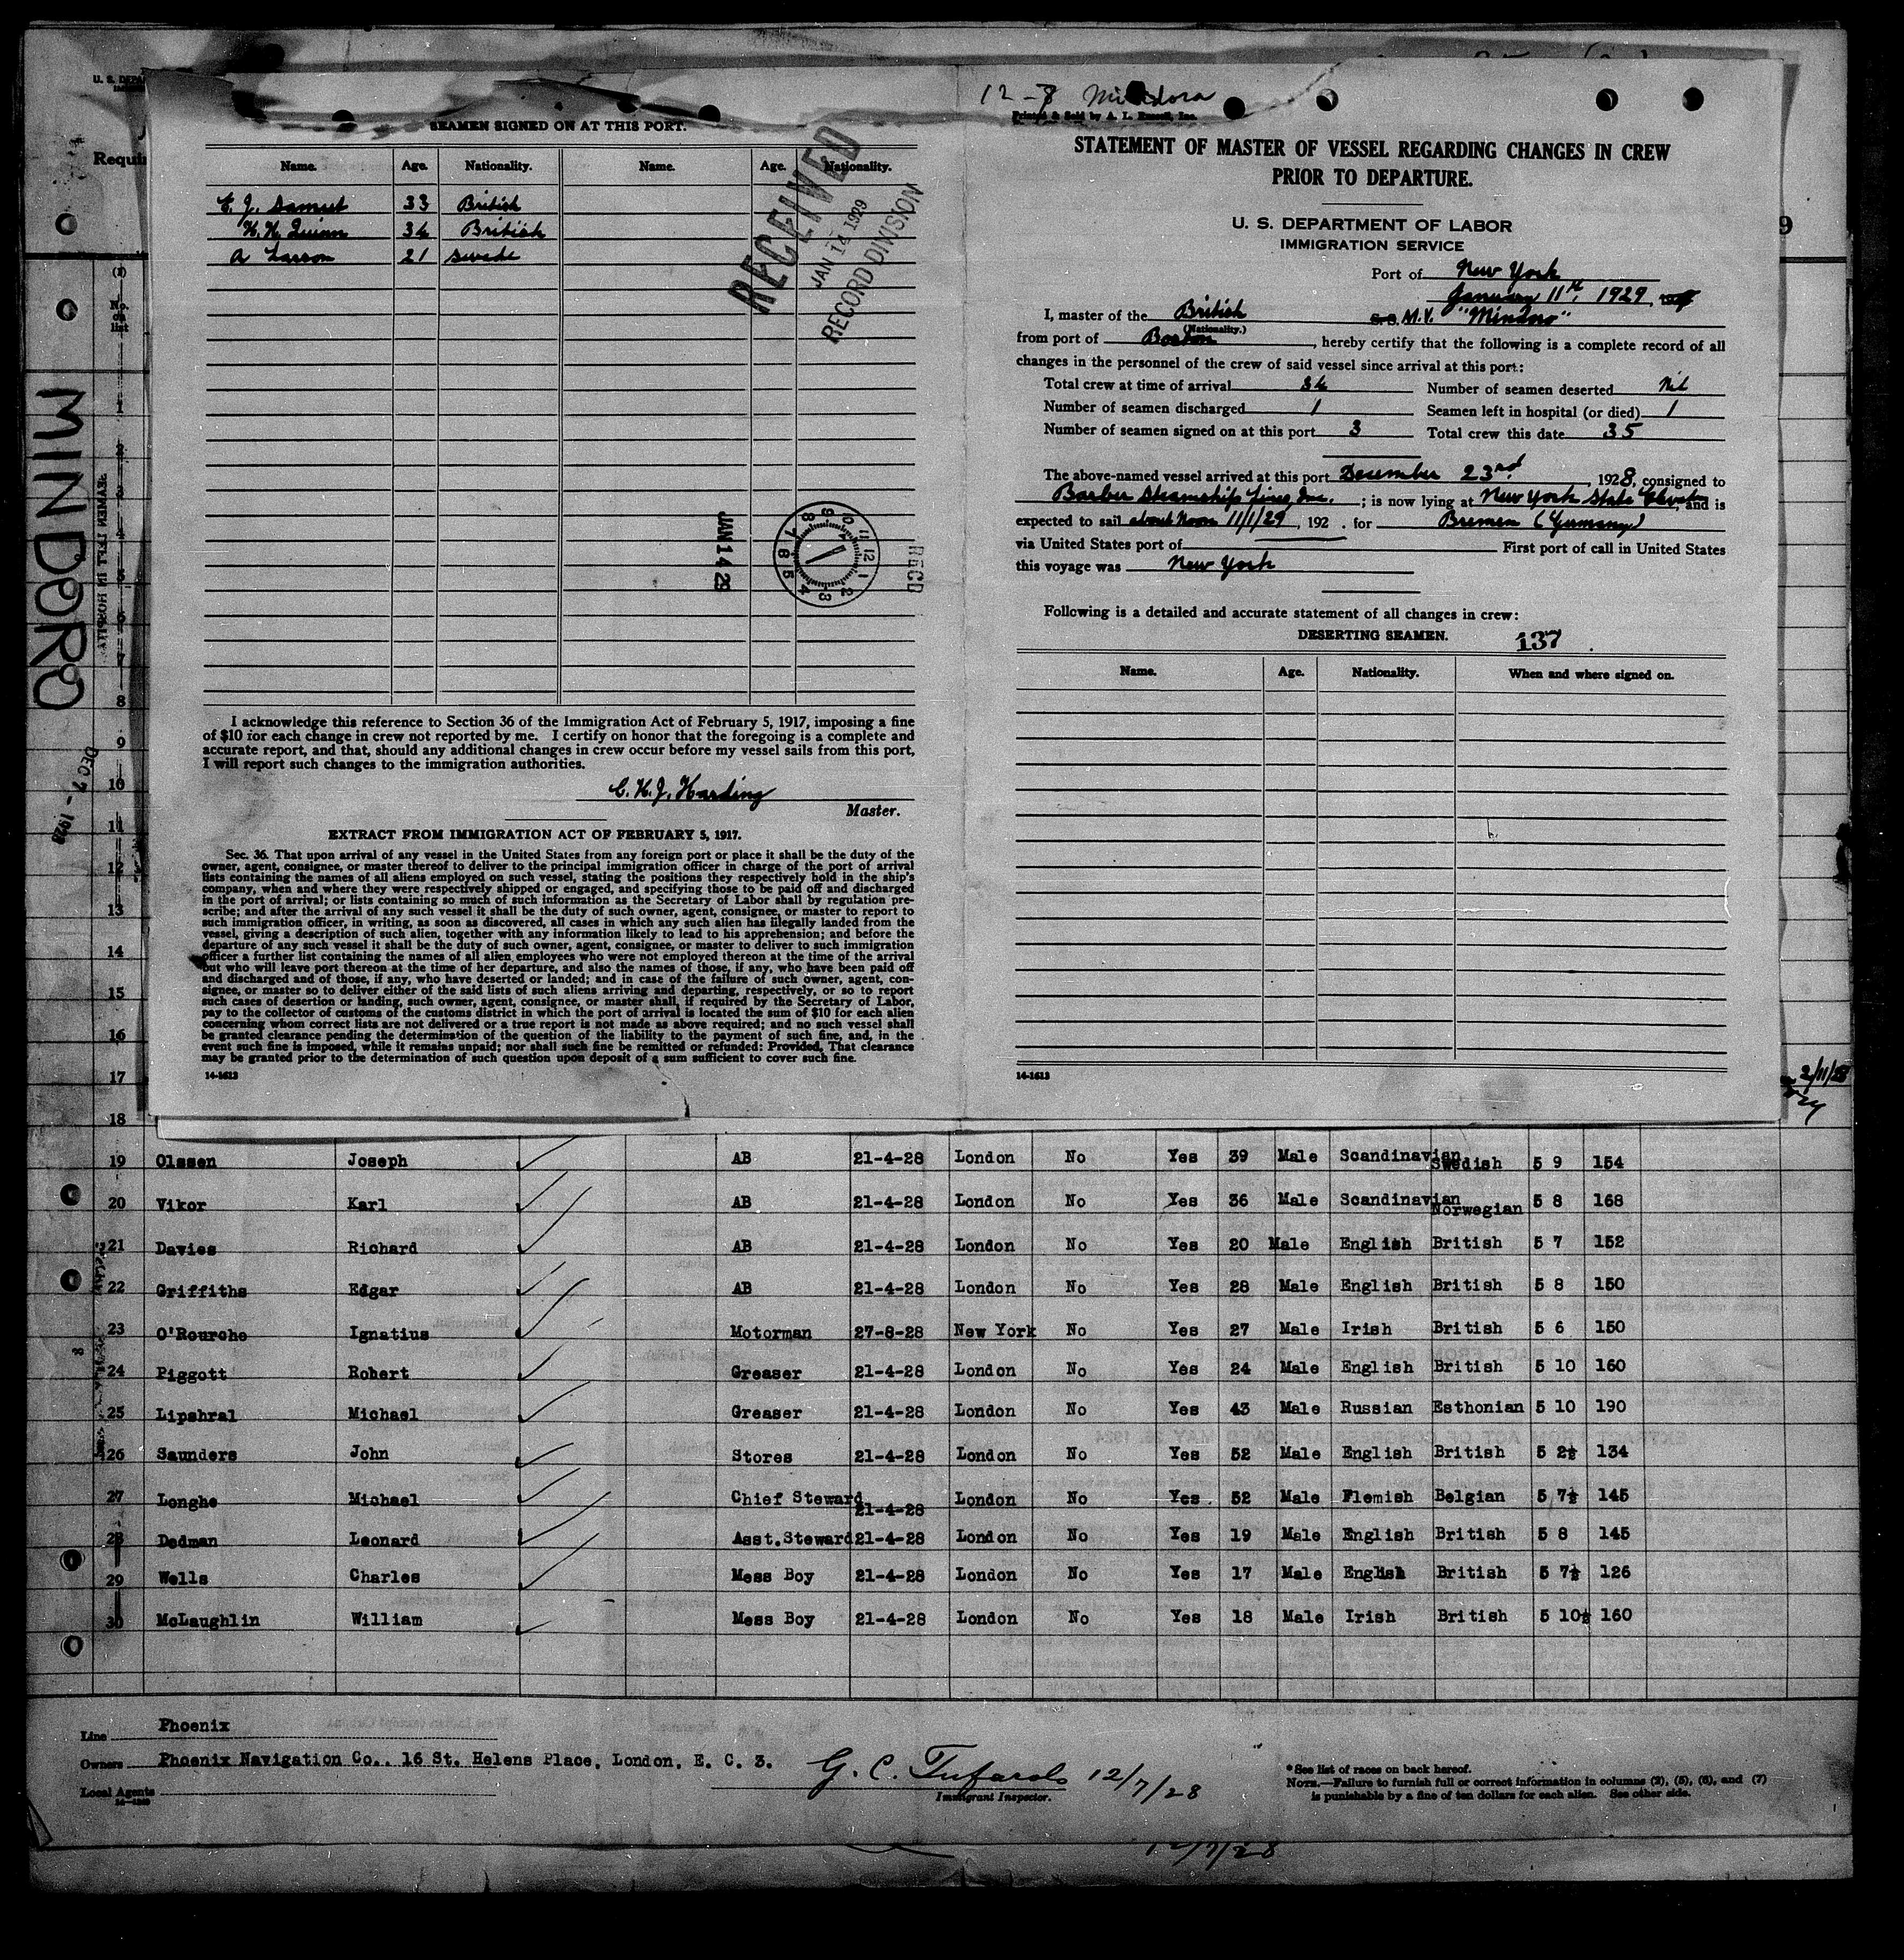 12-8 Mindora
Printed & Sold by A. L. Russell, Inc.
SEAMEN SIGNED ON AT THIS PORT.
Name. Age. Nationality. Name. Age. Nationality.
33 British
H. H. Quinn 34 British
A Larson 21 Swede
RECEIVED
JAN 14 1929
RECORD DIVISION
JAN 14 29
RECD
I acknowledge this reference to Section 36 of the Immigration Act of February 5, 1917, imposing a fine
of $10 for each change in crew not reported by me. I certify on honor that the foregoing is a complete and
accurate report, and that, should any additional changes in crew occur before my vessel sails from this port,
I will report such changes to the immigration authorities.
C. H. J. Harding
Master.
EXTRACT FROM IMMIGRATION ACT OF FEBRUARY 5, 1917.
Sec. 36. That upon arrival of any vessel in the United States from any foreign port or place it shall be the duty of the
owner, agent, consignee, or master thereof to deliver to the principal immigration officer in charge of the port of arrival
lists containing the names of all aliens employed on such vessel, stating the positions they respectively hold in the ship's
company, when and where they were respectively shipped or engaged, and specifying those to be paid off and discharged
in the port of arrival; or lists containing so much of such information as the Secretary of Labor shall by regulation pre-
scribe; and after the arrival of any such vessel it shall be the duty of such owner, agent, consignee, or master to report to
such immigration officer, in writing, as soon as discovered, all cases in which any such alien has illegally landed from the
vessel, giving a description of such alien, together with any information likely to lead to his apprehension; and before the
departure of any such vessel it shall be the duty of such owner, agent, consignee, or master to deliver to such immigration
officer a further list containing the names of all alien employees who were not employed thereon at the time of the arrival
but who will leave port thereon at the time of her departure, and also the names of those, if any, who have been paid off
and discharged and of those, if any, who have deserted or landed; and in case of the failure of such owner, agent, con-
signee, or master so to deliver either of the said lists of such aliens arriving and departing, respectively, or so to report
such cases of desertion or landing, such owner, agent, consignee, or master shall, if required by the Secretary of Labor,
pay to the collector of customs of the customs district in which the port of arrival is located the sum of $10 for each alien
concerning whom correct lists are not delivered or a true report is not made as above required; and no such vessel shall
be granted clearance pending the determination of the question of the liability to the payment of such fine, and, in the
event such fine is imposed, while it remains unpaid; nor shall such fine be remitted or refunded: Provided, That clearance
may be granted prior to the determination of such question upon deposit of a sum sufficient to cover such fine.
14-1613
STATEMENT OF MASTER OF VESSEL REGARDING CHANGES IN CREW
PRIOR TO DEPARTURE.
U. S. DEPARTMENT OF LABOR
IMMIGRATION SERVICE
Port of New York
January 11th, 1929
I, master of the British S.S. M.V. "Mindoro"
(Nationality.)
from port of Boston, hereby certify that the following is a complete record of all
changes in the personnel of the crew of said vessel since arrival at this port:
Total crew at time of arrival 34 Number of seamen deserted Nil
Number of seamen discharged 1 Seamen left in hospital (or died) 1
Number of seamen signed on at this port 3 Total crew this date 35
The above-named vessel arrived at this port December 23rd, 1928, consigned to
Barber Steamship Lines, Inc.; is now lying at New York State Elevator, and is
expected to sail about Noon 11/1/29, 192 . for Bremen (Germany)
via United States port of First port of call in United States
this voyage was New York
Following is a detailed and accurate statement of all changes in crew:
DESERTING SEAMEN. 137
Name. Age. Nationality. When and where signed on.
14-1613
MINDORO
DEC 7 - 1928
SEAMEN LEFT IN HOSPITAL
(1)
No. on list
1
2
3
4
5
6
7
8
9
10
11
12
13
14
15
16
17
18
19 Olssen Joseph AB 21-4-28 London No Yes 39 Male Scandinavian Swedish 5 9 154
20 Vikor Karl AB 21-4-28 London No Yes 36 Male Scandinavian Norwegian 5 8 168
21 Davies Richard AB 21-4-28 London No Yes 20 Male English British 5 7 152
22 Griffiths Edgar AB 21-4-28 London No Yes 28 Male English British 5 8 150
23 O'Rourche Ignatius Motorman 27-8-28 New York No Yes 27 Male Irish British 5 6 150
24 Piggott Robert Greaser 21-4-28 London No Yes 24 Male English British 5 10 160
25 Lipshral Michael Greaser 21-4-28 London No Yes 43 Male Russian Esthonian 5 10 190
26 Saunders John Stores 21-4-28 London No Yes 52 Male English British 5 2½ 134
27 Longhe Michael Chief Steward 21-4-28 London No Yes 52 Male Flemish Belgian 5 7½ 145
28 Dedman Leonard Asst. Steward 21-4-28 London No Yes 19 Male English British 5 8 145
29 Wells Charles Mess Boy 21-4-28 London No Yes 17 Male English British 5 7½ 126
30 McLaughlin William Mess Boy 21-4-28 London No Yes 18 Male Irish British 5 10½ 160
Line Phoenix
Owners Phoenix Navigation Co., 16 St. Helens Place, London, E. C. 3.
Local Agents
G. C. Tufarolo 12/7/28
Immigrant Inspector.
*See list of races on back hereof.
NOTE.—Failure to furnish full or correct information in columns (2), (5), (6), and (7)
is punishable by a fine of ten dollars for each alien. See other side.
12/7/28